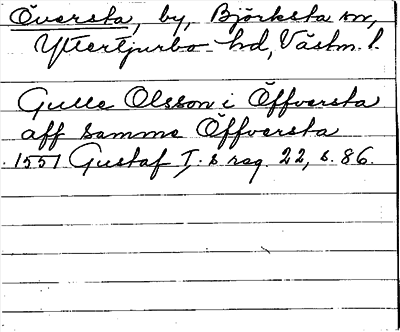 Översta, by, Björksta sn,
Yttertjurbo hd, Västm. l.
Gulle Olsson i Öffversta
aff samme Öffversta
1551 Gustaf I:s reg. 22, s. 86.